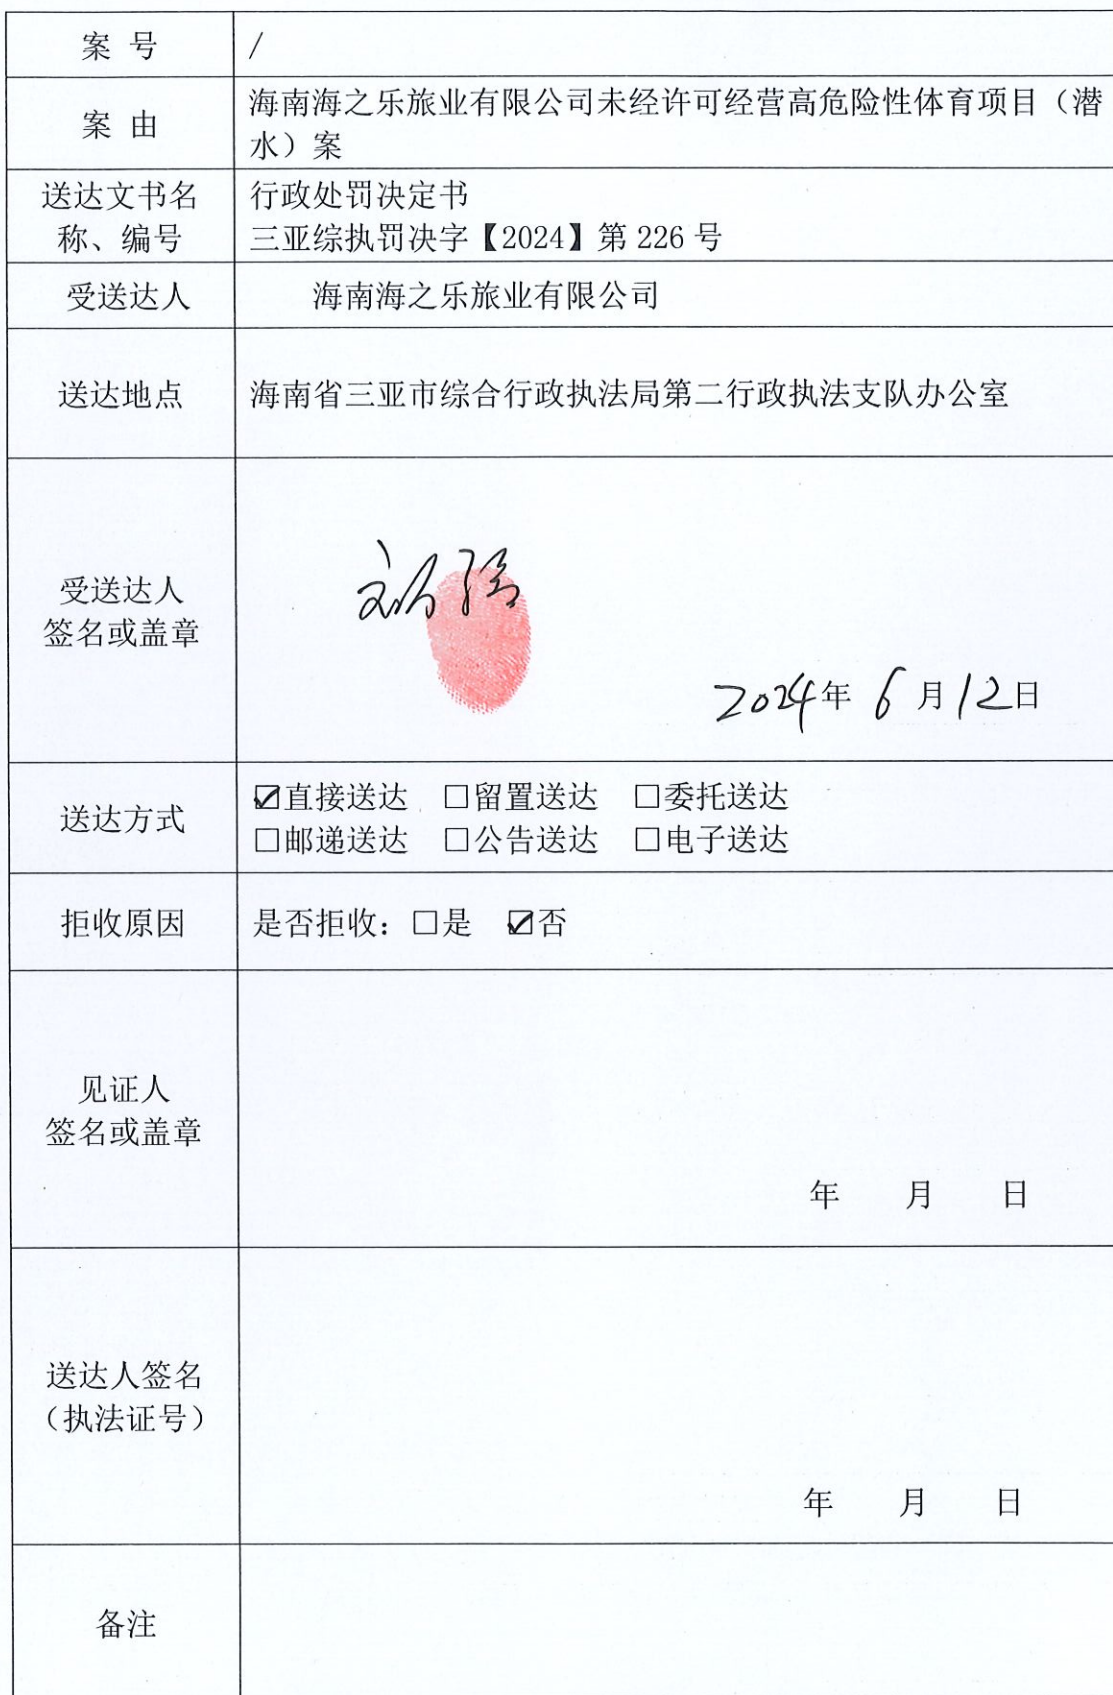 案 号
/
案 由
海南海之乐旅业有限公司未经许可经营高危险性体育项目（潜
水）案
送达文书名
称、编号
行政处罚决定书
三亚综执罚决字【2024】第 226 号
受送达人
海南海之乐旅业有限公司
送达地点
海南省三亚市综合行政执法局第二行政执法支队办公室
受送达人
签名或盖章
2024年 6 月12日
送达方式
☑直接送达 □留置送达 □委托送达
□邮递送达 □公告送达 □电子送达
拒收原因
是否拒收：□是 ☑否
见证人
签名或盖章
年 月 日
送达人签名
（执法证号）
年 月 日
备注